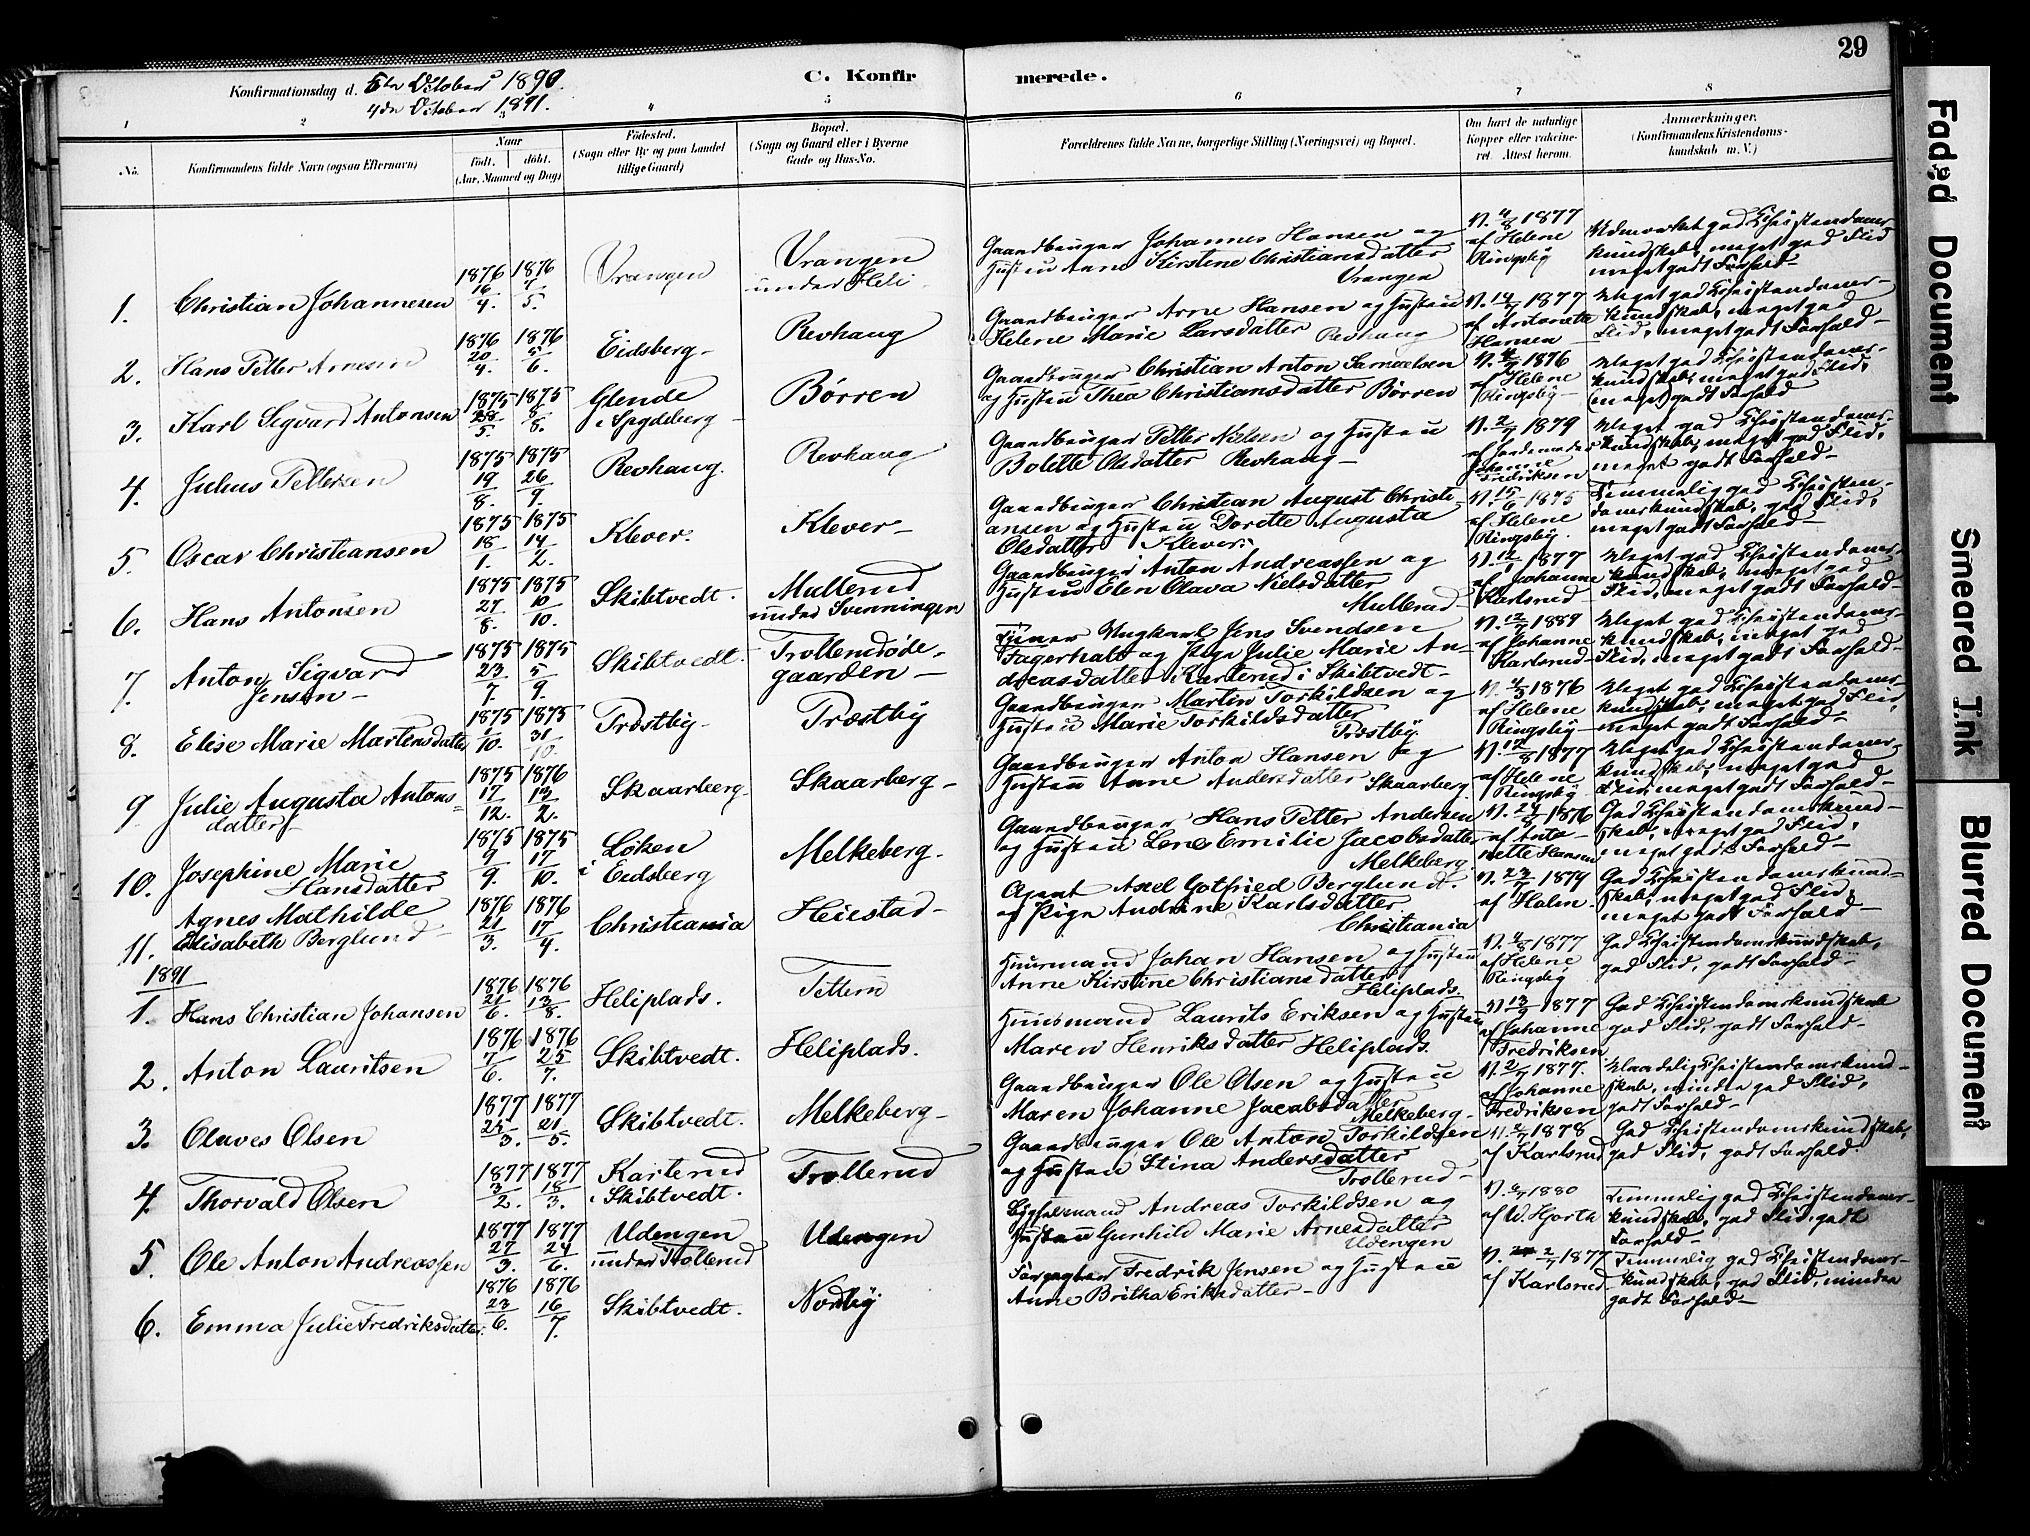 29
Konfirmationsdag d. 5te October 1890.
4de October 1891.
C. Konfirmerede.
1 2 3 4 5 6 7 8
No.
Konfirmandens fulde Navn (ogsaa Efternavn)
Naar
födt. döbt.
(Aar, Maaned og Dag)
Födested.
(Sogn eller By og paa Landet
tillige Gaard)
Bopæl.
(Sogn og Gaard eller i Byerne
Gade og Hus-No.
Forældrenes fulde Navne, borgerlige Stilling (Næringsvei) og Bopæl.
Om havt de naturlige
Kopper eller vakcine-
ret. Attest herom.
Anmærkninger.
(Konfirmandens Kristendoms-
kundskab m. V.)
1. Christian Johannesen 1876 16/4. 1876 7/5. Vrangen Vrangen under Heli
Gaardbruger Johannes Hansen og
Hustru Anne Kirstine Christiansdatter
Vrangen
V. 4/8 1877
af Helene
Ringsby
Udmærket god Christendoms-
kundskab, meget god Flid
meget godt Forhold-
2. Hans Petter Arnesen 1876 20/4. 1876 5/6. Eidsberg- Revhaug
Gaardbruger Arne Hansen og Hustru
Helene Marie Larsdatter Revhaug
1877
af Antonette
Hansen
Meget god Christendoms-
kundskab, meget god
Flid, meget godt Forhold-
3. Karl Sigvard Antonsen 1875 28/5. 1875 8/8. Glende i Spydeberg- Börren
Gaardbruger Christian Anton Samuelsen
og Hustru Thea Christiansdatter Börren
1876
af Helene
Ringsby-
Meget god Christendoms-
kundskab, meget god Flid,
meget godt Forhold
4. Julius Pettersen 1875 19/8. 1875 26/9. Revhaug. Revhaug
Gaardbruger Petter Nielsen og Hustru
Bolette Olsdatter Revhaug-
1879
af Jordemoder
Johanne
Fredriksen
Meget god Christendoms-
kundskab, meget god Flid,
meget godt Forhold-
5. Oscar Christiansen 1875 18/1. 1875 14/2. Klever. Klever-
Gaardbruger Christian August Christi-
ansen og Hustru Dorette Augusta
Olsdatter Klever.
V. 15/6 1875
af Helene
Ringsby.
Temmelig god Christen-
domskundskab, god Flid,
meget godt Forhold-
6. Hans Antonsen 1875 27/8. 1875 10/10. Skibtvedt. Mullerud under Svenningen
Gaardbruger Anton Andreassen og
Hustru Elen Olava Nielsdatter
Mullerud-
1877
af Johanne
Karlsrud
Meget god Christendoms-
kundskab, meget god
Flid, meget godt Forhold-
7. Anton Sigvard Jensen- 1875 23/7. 1875 5/9. Skibtvedt. Trollerudöde-gaarden-
Ungkarl Jens Svendsen
og Pige Julie Marie An-
dreasdatter Karterud i Skibtvedt-
af Johanne
Karlsrud-
Meget god Christendoms-
kundskab, meget god
Flid, meget godt Forhold-
8. Elise Marie Martinsdatter 1875 1/10. 1875 31/10. Træstby- Træstby
Gaardbruger Martin Torkildsen og
Hustru Marie Torkildsdatter
Træstby.
1876
af Helene
Ringsby-
Meget god Christendoms-
kundskab, meget god Flid,
meget godt Forhold-
9 Julie Augusta Antons-datter 1875 17/12. 1876 13/2. Skaarberg- Skaarberg-
Gaardbruger Anton Hansen og
Hustru Anne Andersdatter Skaarberg
1877
af Helene
Ringsby
Meget god Christendoms-
kundskab, meget god
Flid, meget godt Forhold-
10. Josephine Marie Hansdatter 1875 9/9. 1875 17/10. Löken i Eidsberg Melkeberg.
Gaardbruger Hans Petter Andersen
og Hustru Lene Emilie Jacobsdatter
Melkeberg
1876
af Anto-
nette Hansen
God Christendomskund-
skab, meget god Flid,
meget godt Forhold-
11. Agnes Mathilde Elisabeth Berglund- 1876 21/3. 1876 17/4. Christiania Heiestad-
Agent Axel Gotfried Berglund.
og Pige Andrine Karlsdatter
Christiania
1879
af Holm.
God Christendomskund-
skab, meget god Flid,
meget godt Forhold-
1891
1. Hans Christian Johansen 1876 21/6. 1876 13/8. Heliplads. Tettern
Huusmand Johan Hansen og Hustru
Anne Kirstine Christiansdatter
Heliplads.
V. 4/8 1877
af Helene
Ringsby
God Christendomskundskab,
god Flid, godt Forhold-
2. Anton Lauritsen 1876 7/6. 1876 25/7. Skibtvedt. Heliplads.
Huusmand Laurits Eriksen og Hustru
Maren Henriksdatter Heliplads.
1877
af Johanne
Fredriksen
God Christendomskundskab
god Flid, godt Forhold-
3. Olaves Olsen 1877 25/3. 1877 21/5. Skibtvedt. Melkeberg-
Gaardbruger Ole Olsen og Hustru
Maren Johanne Jacobsdatter
Melkeberg-
1877.
af Johanne
Fredriksen
Maadelig Christendomskund-
skab, mindre god Flid,
godt Forhold-
4. Thorvald Olsen 1877 3/2. 1877 18/3. Karterud i Skibtvedt. Trollerud
Gaardbruger Ole Anton Torkildsen
og Hustru Stina Andersdatter
Trollerud-
1878
af Karlsrud
God Christendomskundskab,
god Flid, godt Forhold.
5. Ole Anton Andreassen 1877 27/3. 1877 24/6. Udengen under Trollerud Udengen
Andreas Torkildsen og
Hustru Gunhild Marie Arnesdatter
Udengen
1880
af W. Hjorth
Temmelig god Christendoms-
kundskab, god Flid, godt
Forhold-
6. Emma Julie Fredriksdatter. 1876 23/6. 1876 16/7. Skibtvedt. Nordby
Fredrik Jensen og Hustru
Anne Britha Eriksdatter-
1877
af Karlsrud-
Temmelig god Christendoms-
kundskab, god Flid, mindre
godt Forhold-
Faded Document
Smeared Ink
Blurred Document